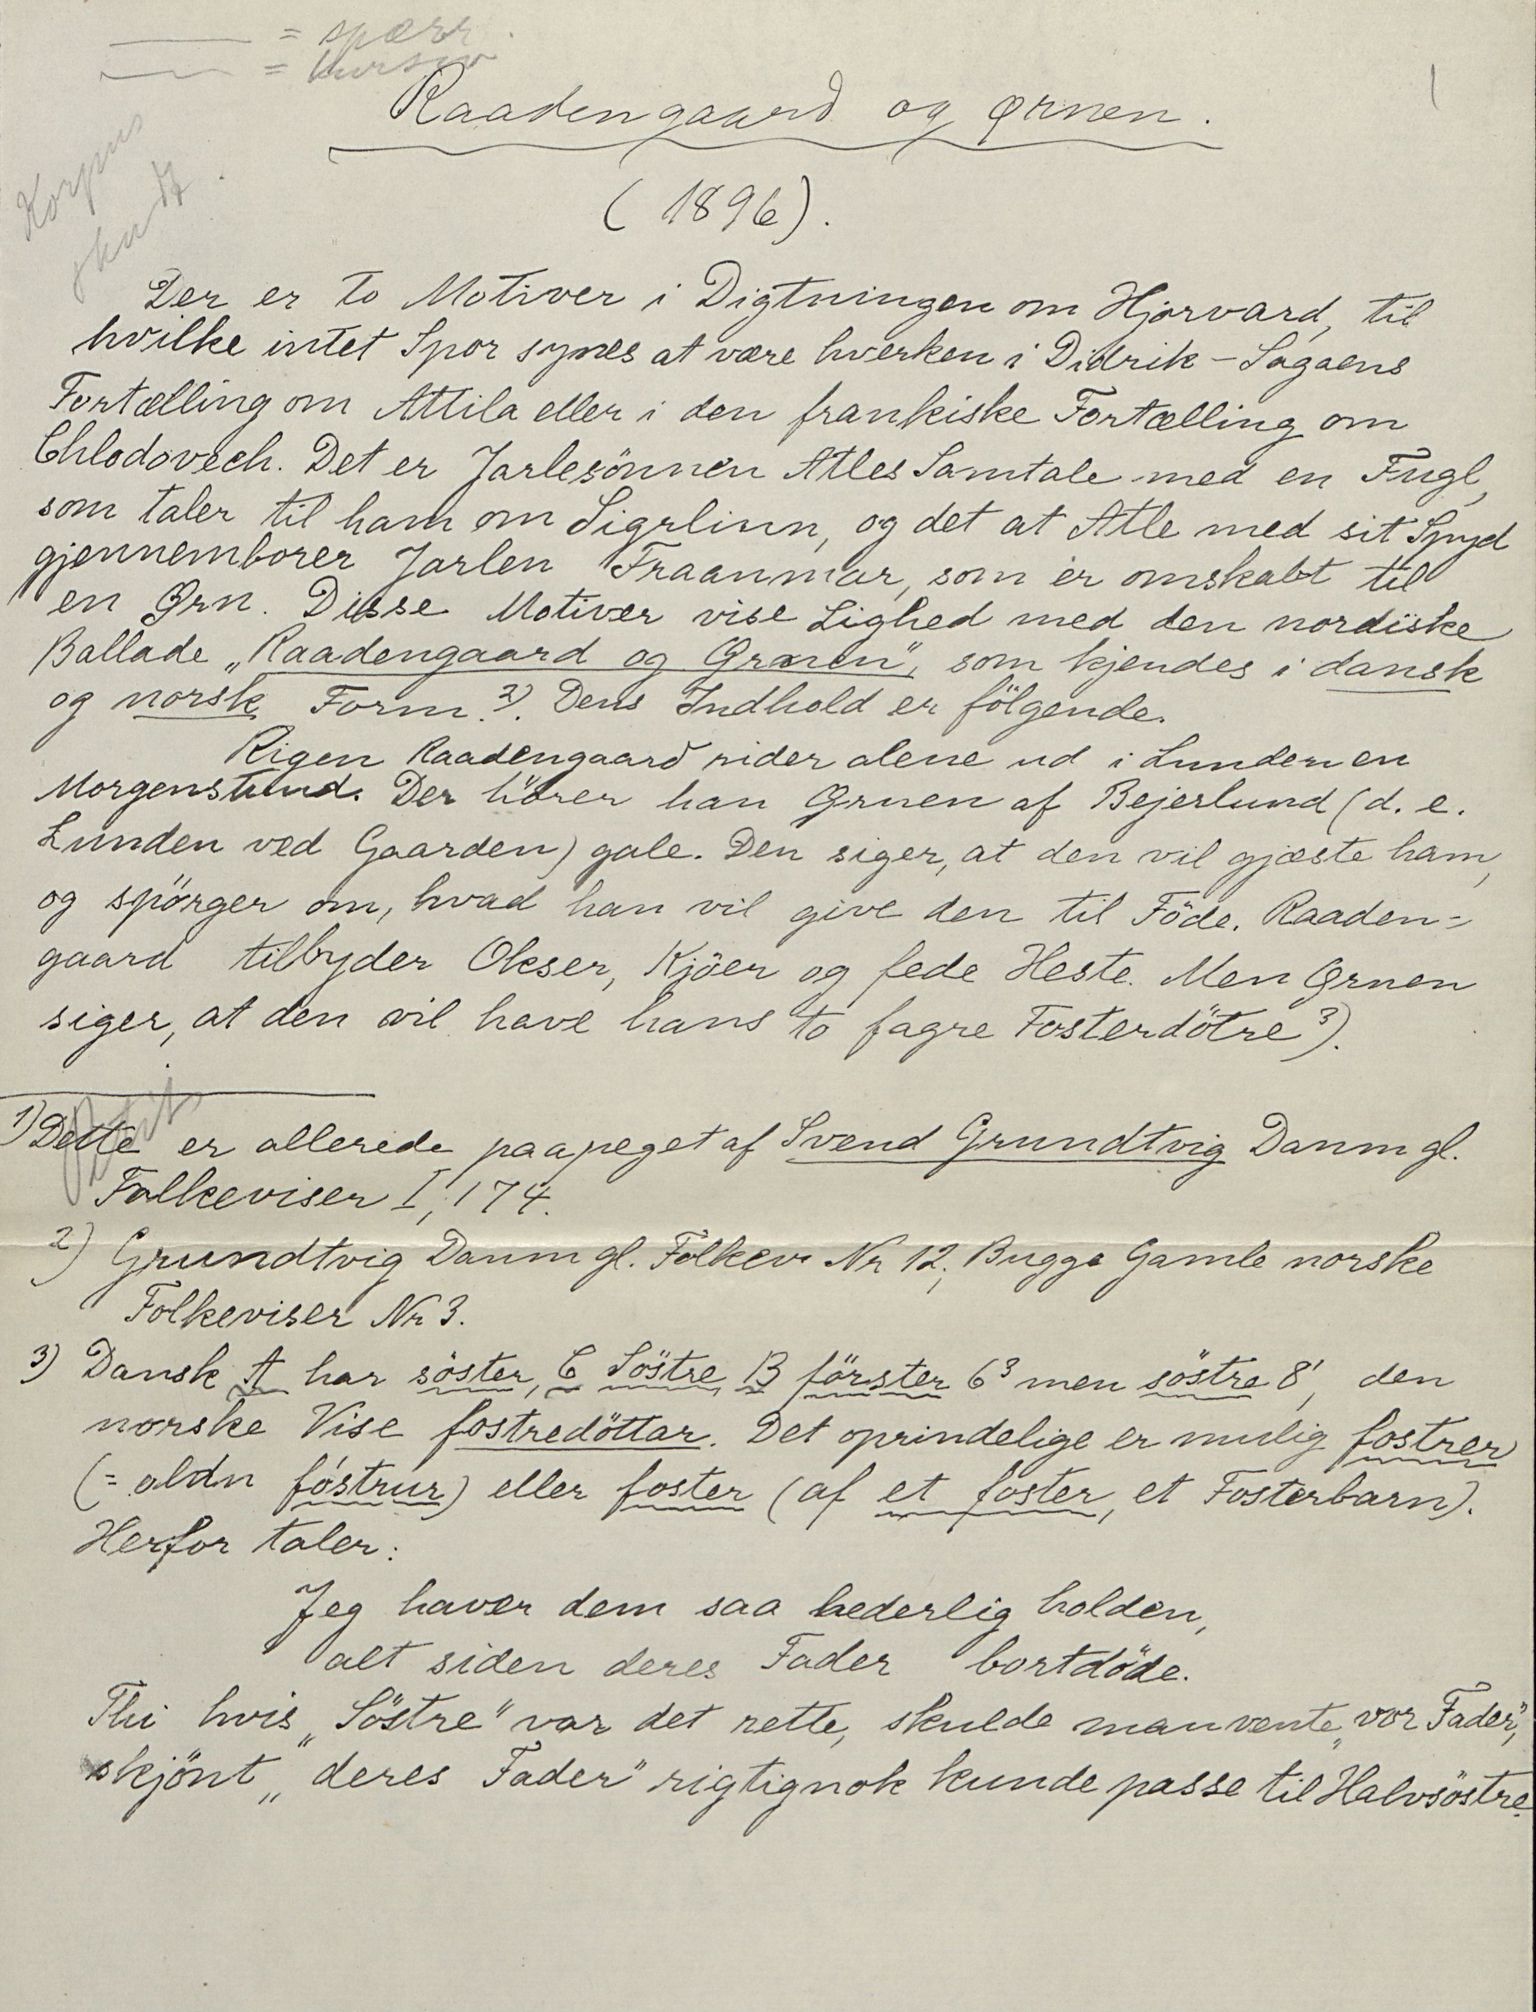 = spærr.
= kursiv
1
Korpus
skudt.
Raadengaard og Ørnen.
(1896).
Der er to Motiver i Digtningen om Hjorvard, til
hvilke intet Spor synes at være hverken i Didrik-Sagaens
Fortælling om Attila eller i den frankiske Fortælling om
Chlodovech. Det er Jarlesönnen Atles Samtale med en Fugl,
som taler til ham om Sigrlinn, og det at Atle med sit Spyd
gjennemborer Jarlen Fraanmar, som er omskabt til
en Ørn. Disse Motiver vise Lighed med den nordiske
Ballade „Raadengaard og Ørnen", som kjendes i dansk
og norsk Form.2). Dens Indhold er fölgende.
Rigen Raadengaard rider alene ud i Lunden en
Morgenstund. Der hörer han Ørnen af Bejerlund (d. e.
Lunden ved Gaarden) gale. Den siger, at den vil gjæste ham,
og spörger om, hvad han vil give den til Föde. Raaden=
gaard tilbyder Okser, Kjöer og fede Heste. Men Ørnen
siger, at den vil have hans to fagre Fosterdötre3).
Petit
1) Dette er allerede paapeget af Svend Grundtvig Danm gl.
Folkeviser I, 174.
2) Grundtvig Danm gl. Folkev Nr 12; Bugge Gamle norske
Folkeviser Nr 3.
3) Dansk A har söster, C Söstre, B förster 6³ men söstre 8¹, den
norske Vise fostredöttar. Det oprindelige er mulig fostrer
(= oldn fóstrur) eller foster (af et foster, et Fosterbarn).
Herfor taler:
Jeg haver dem saa hederlig holden,
alt siden deres Fader bortdöde.
Thi hvis „Söstre" var det rette, skulde man vente „vor Fader",
skjönt „deres Fader" rigtignok kunde passe til Halvsöstre.